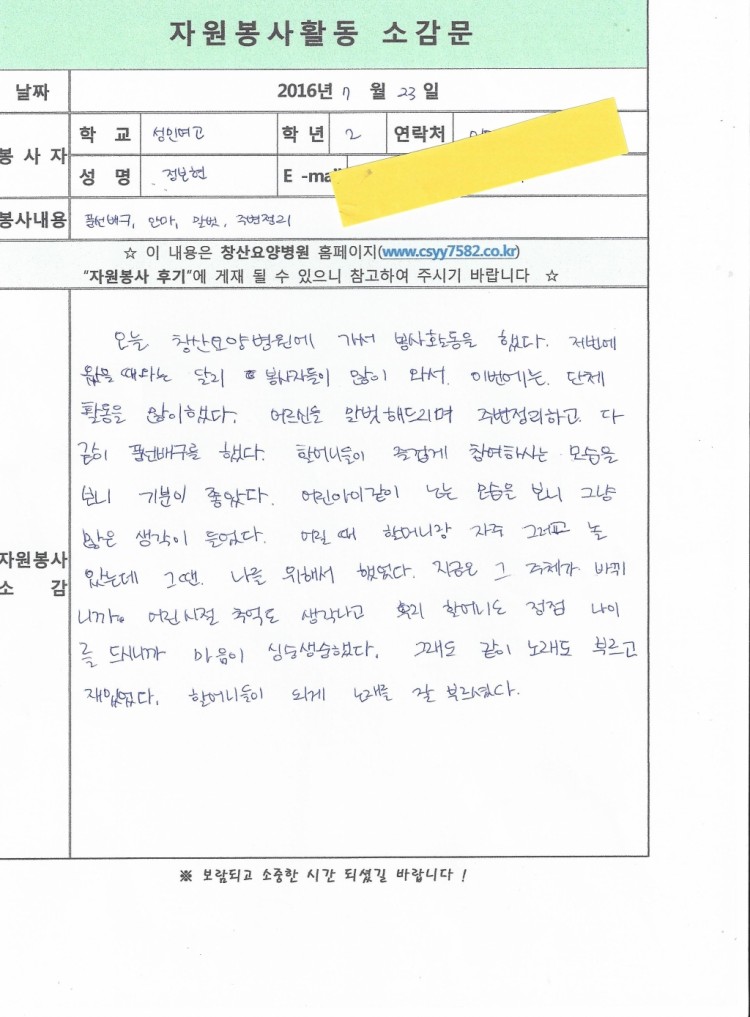 자원봉사활동 소감문
날짜 2016년 7 월 23 일
봉 사 자 학 교 성민여고 학 년 2 연락처
성 명 정보현 E -ma
봉사내용 풍선배구, 안마, 말벗, 주변정리
☆ 이 내용은 창산요양병원 홈페이지(www.csyy7582.co.kr)
"자원봉사 후기"에 게재 될 수 있으니 참고하여 주시기 바랍니다 ☆
오늘 창산요양병원에 가서 봉사활동을 했다. 저번에
왔을 때와는 달리 봉사자들이 많이 와서 이번에는 단체
활동을 많이했다. 어르신을 말벗해드리며 주변정리하고 다
같이 풍선배구를 했다. 할머니들이 즐겁게 참여하시는 모습을
보니 기분이 좋았다. 어린아이같이 노는 모습을 보니 그냥
많은 생각이 들었다. 어릴 때 할머니랑 자주 그러고 놀
았는데 그땐 나를 위해서 했었다. 지금은 그 주체가 바뀌
니까 어린시절 추억도 생각나고 우리 할머니도 점점 나이
를 드시니까 마음이 싱숭생숭했다. 그래도 같이 노래도 부르고
재밌었다. 할머니들이 되게 노래를 잘 부르셨다.
자원봉사
소 감
※ 보람되고 소중한 시간 되셨길 바랍니다 !